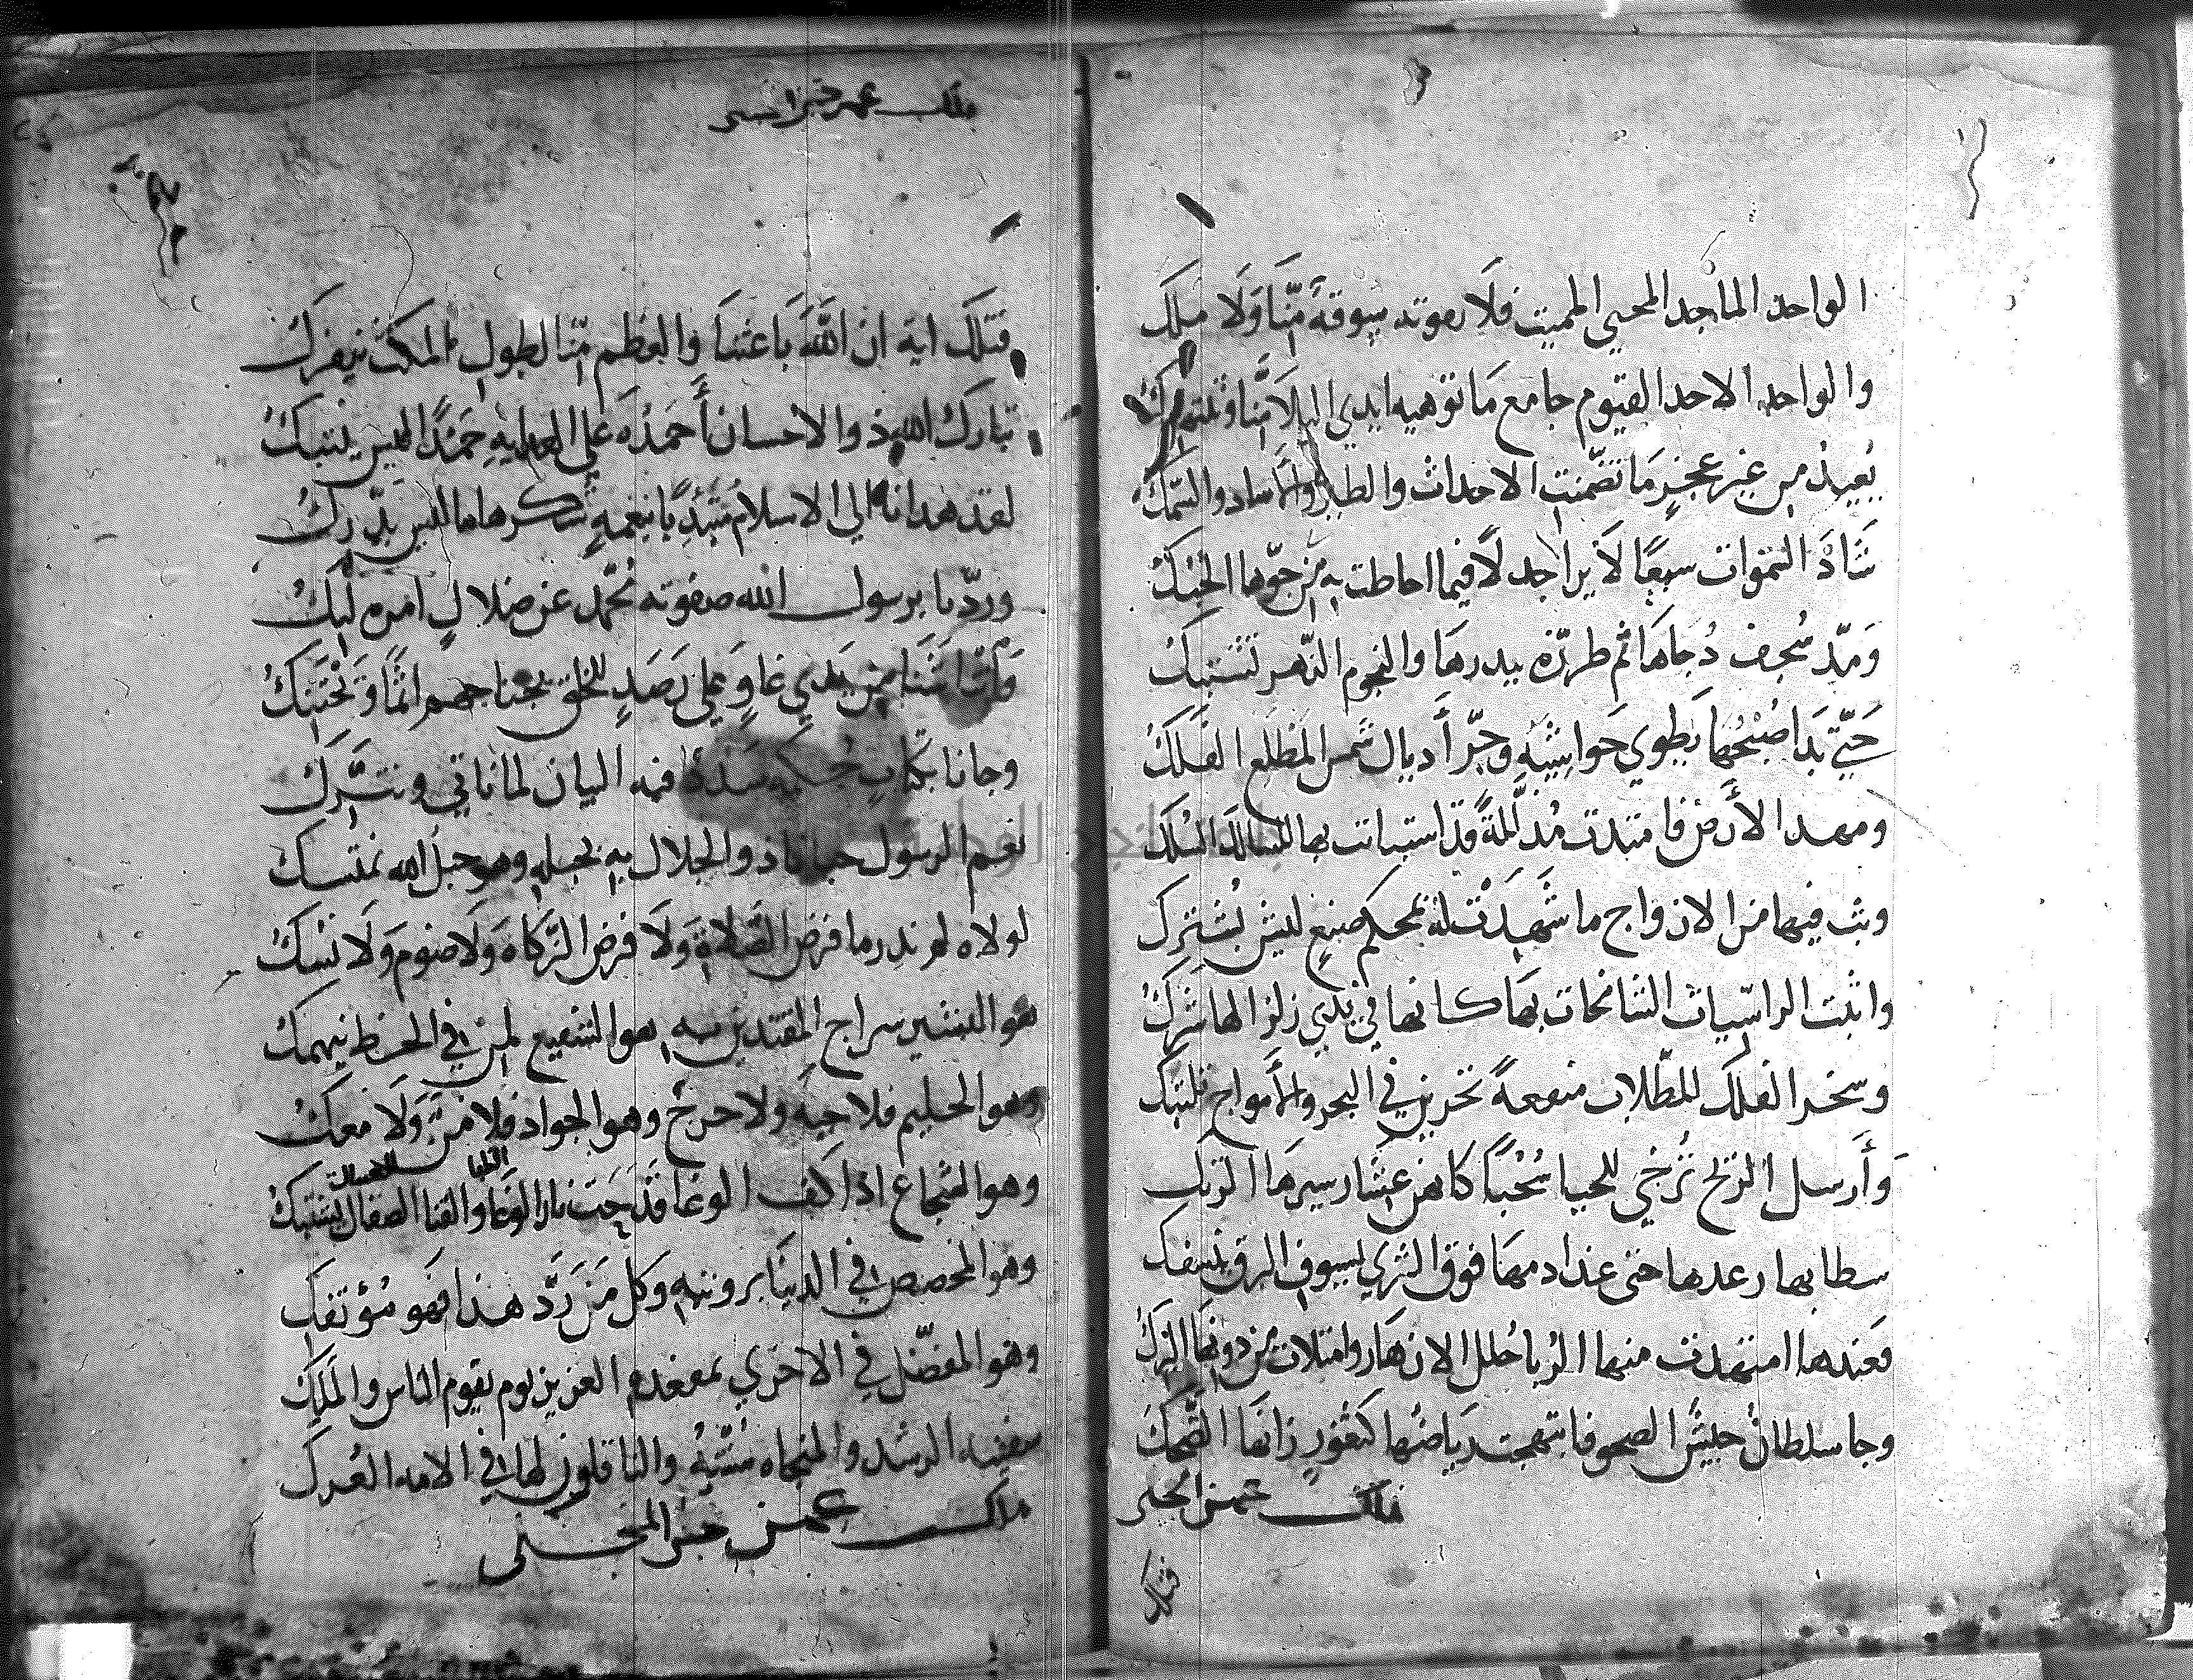 الواحد الماجد المحيي المميت فلا يفوته سوقة منّا ولا ملك
والواحد الاحد القيوم جامع ما توهيه ايدي البلا منا وتنتهك
يعيد من غير عجز ما تضمنت الاحداث والطير والاساد والسمك
شاد السموات سبعا لا يرا جدلا فيما احاطت به من جوّها الحبك
ومدّ سجف دجاها ثم طرّزه ببدرها والنجوم الزهر تشتبك
حتّي بدا صبحها يطوي حواشيه وجرّ أديال شمس المطلع الفلك
ومهد الأرض فامتدت مذلّلة قد استبانت بها للسالك السلك
وبث فيها من الازواج ما شهدت له بمحكم صنع ليس يشترك
واثبت الراسيات الشامخات بها كانها في يدي زلزالها شرك
وسخر الفلك للطلاب منفعة تجرين في البحر والأمواج تلتبك
وأرسل الريح تزجي للحيا سحبا كانهن عشار سيرها الرتك
سطا بها رعدها حتى غدا دمها فوق الثري بسيوف البرق ينسفك
فعندها امتهدت منها الربا حلل الازهار وامتلات من دونها البرك
وجا سلطان جيش الصحو فابتهجت رياضها كثغور زانها الضحك
ملك
فتلك
ملك
فتلك اية ان الله باعثنا والعظم منّا لطول المكث ينفرك
تبارك الله ذو الاحسان أحمده علي الهدايه حمدا ليس ينبتك
لقد هدانا الي الاسلام مبتديا بنعمة شكرها ما ليس يدّرك
وردّنا برسول الله صفوته محمّد عن ضلال امره لبك
وانتاشنا من يدي غاو علي رصد للخلق يجتاحهم اثما ويحتنك
وجانا بكتاب فيه البيان لما ناتي ونتّرك
نعم الرسول حبانا ذو الجلال به بحبله وهو حبل الله نمتسك
لولاه لم ندر ما فرض الصلاة ولا فرض الزكاة ولا صوم ولا نسك
هو البشير سراج المقتدين به هو الشفيع لمن في الحر ينهمك
وهو الحليم فلا جبه ولا حرج وهو الجواد فلا منّ ولا معك
وهو الشجاع اذا كف الوغا قدحت نار الوغا والقنا الصقال تشتبك
وهو المخصص في الدنيا برويته وكل من ردّ هذا فهو مؤتفك
وهو المفضّل في الاخري بمقعده العزيز يوم يقوم الناس والملك
سفينة الرشد والمنجاه سنّته والناقلون لها في الامه العرك
ملك